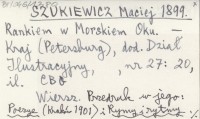 SZUKIEWICZ Maciej 1899.
Rankiem w Morskiem Oku. —
Kraj (Petersburg), dod. Dział
Ilustracyjny, nr 27: 20,
il. CBO
Wiersz. Przedruk w jego:
Poezye (Kraków 1901) i Rymy i rytmy